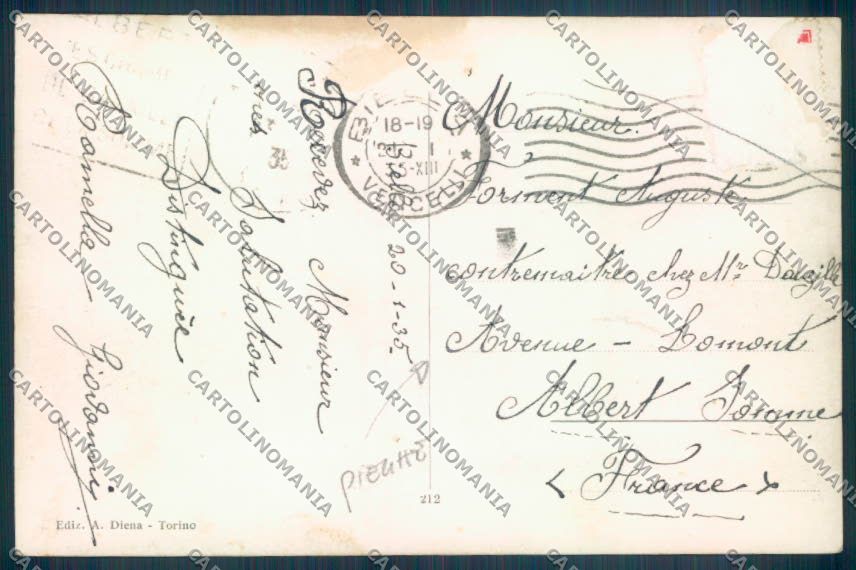 Biella 20-1-35.
Recevez Monsieur
mes Salutation
Distinguée
Romella Giovanni
BIELLA
18-19
XIII
VERCELLI
Monsieur.
Forment Auguste
contremaitre chez Mr
Avenue - Lomont
Albert Somme
< France >
PIEGHE
212
Ediz. A. Diena - Torino
CARTOLINOMANIA